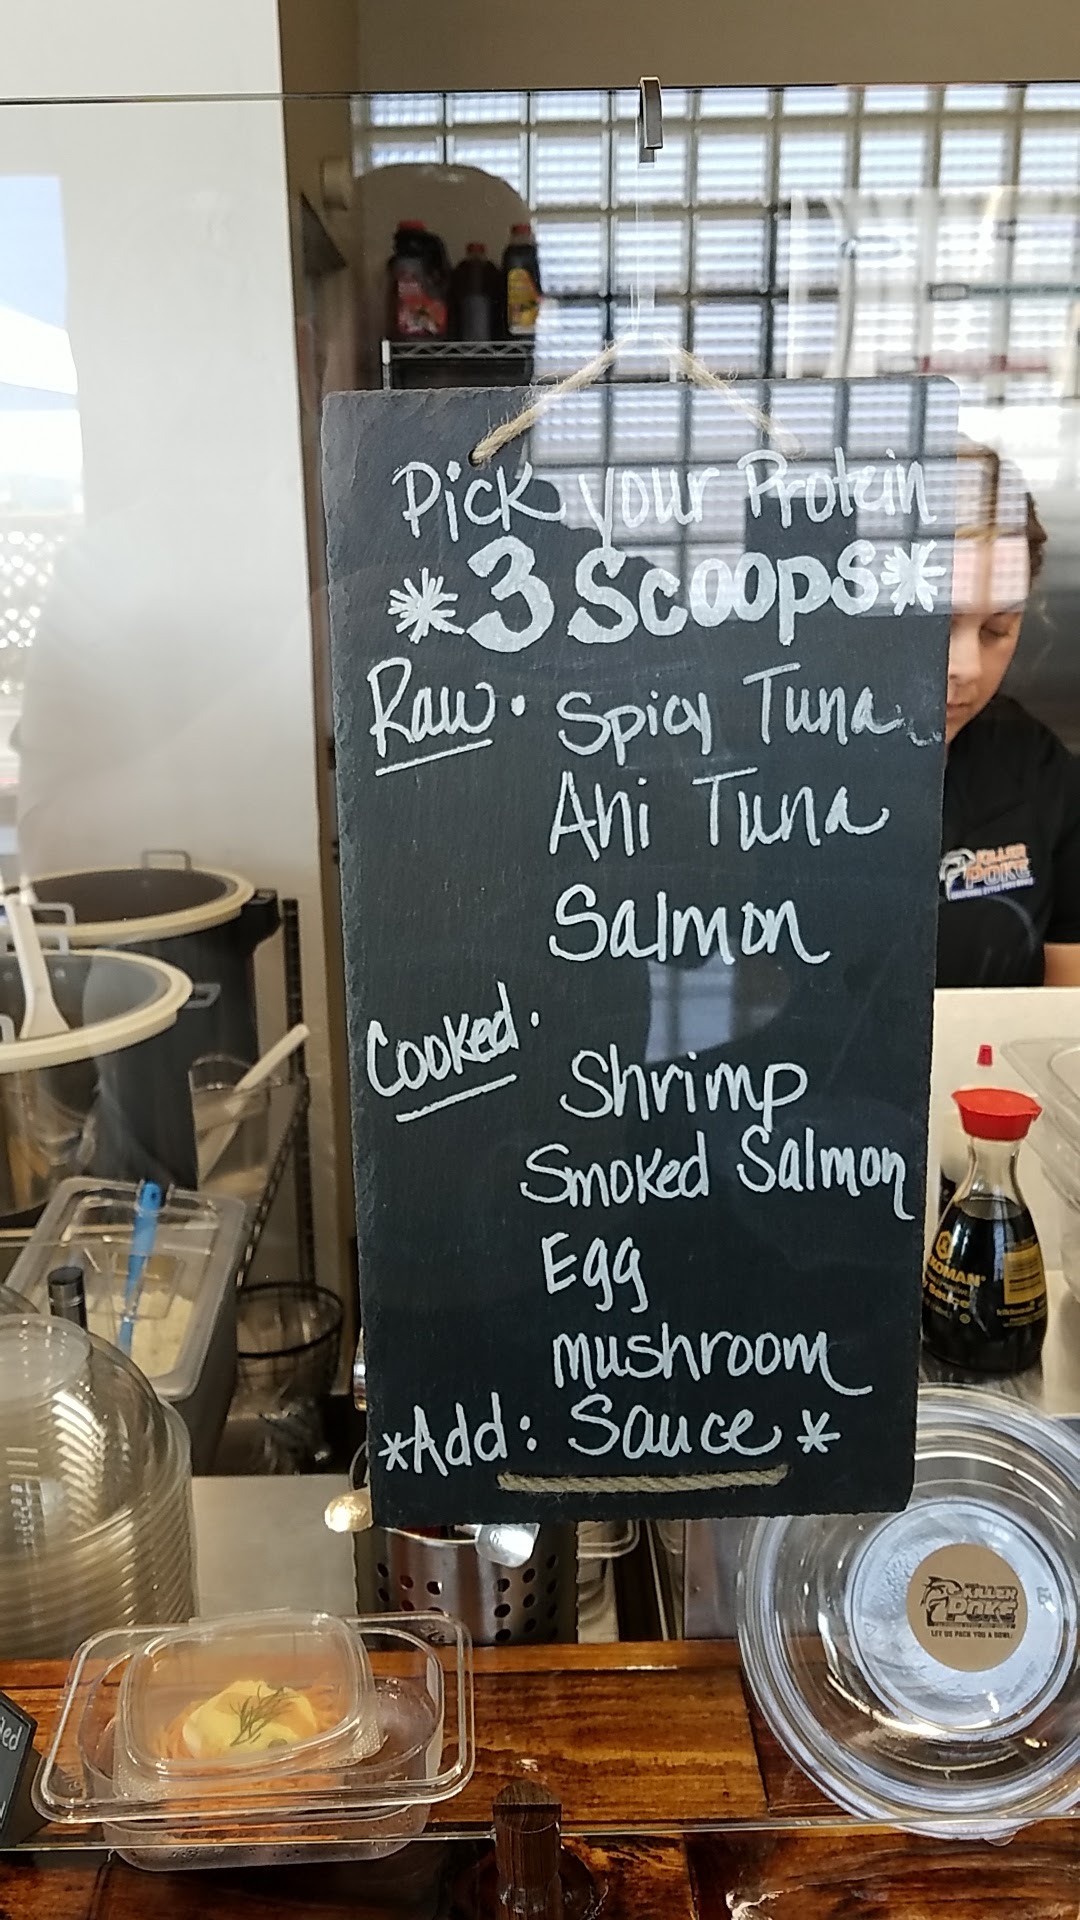 Pick your Protein
*3 Scoops*
Raw • Spicy Tuna
Ahi Tuna
Salmon
Cooked •
Shrimp
Smoked Salmon
Egg
mushroom
*Add: Sauce *
KILLER
POKE
KILLER
POKE
LET US PACK YOU A BOWL!